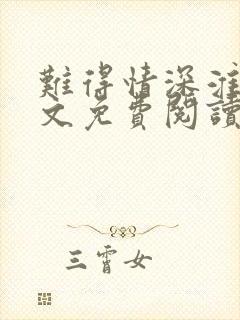 難得情深淮
文免費閱讀
三霄女